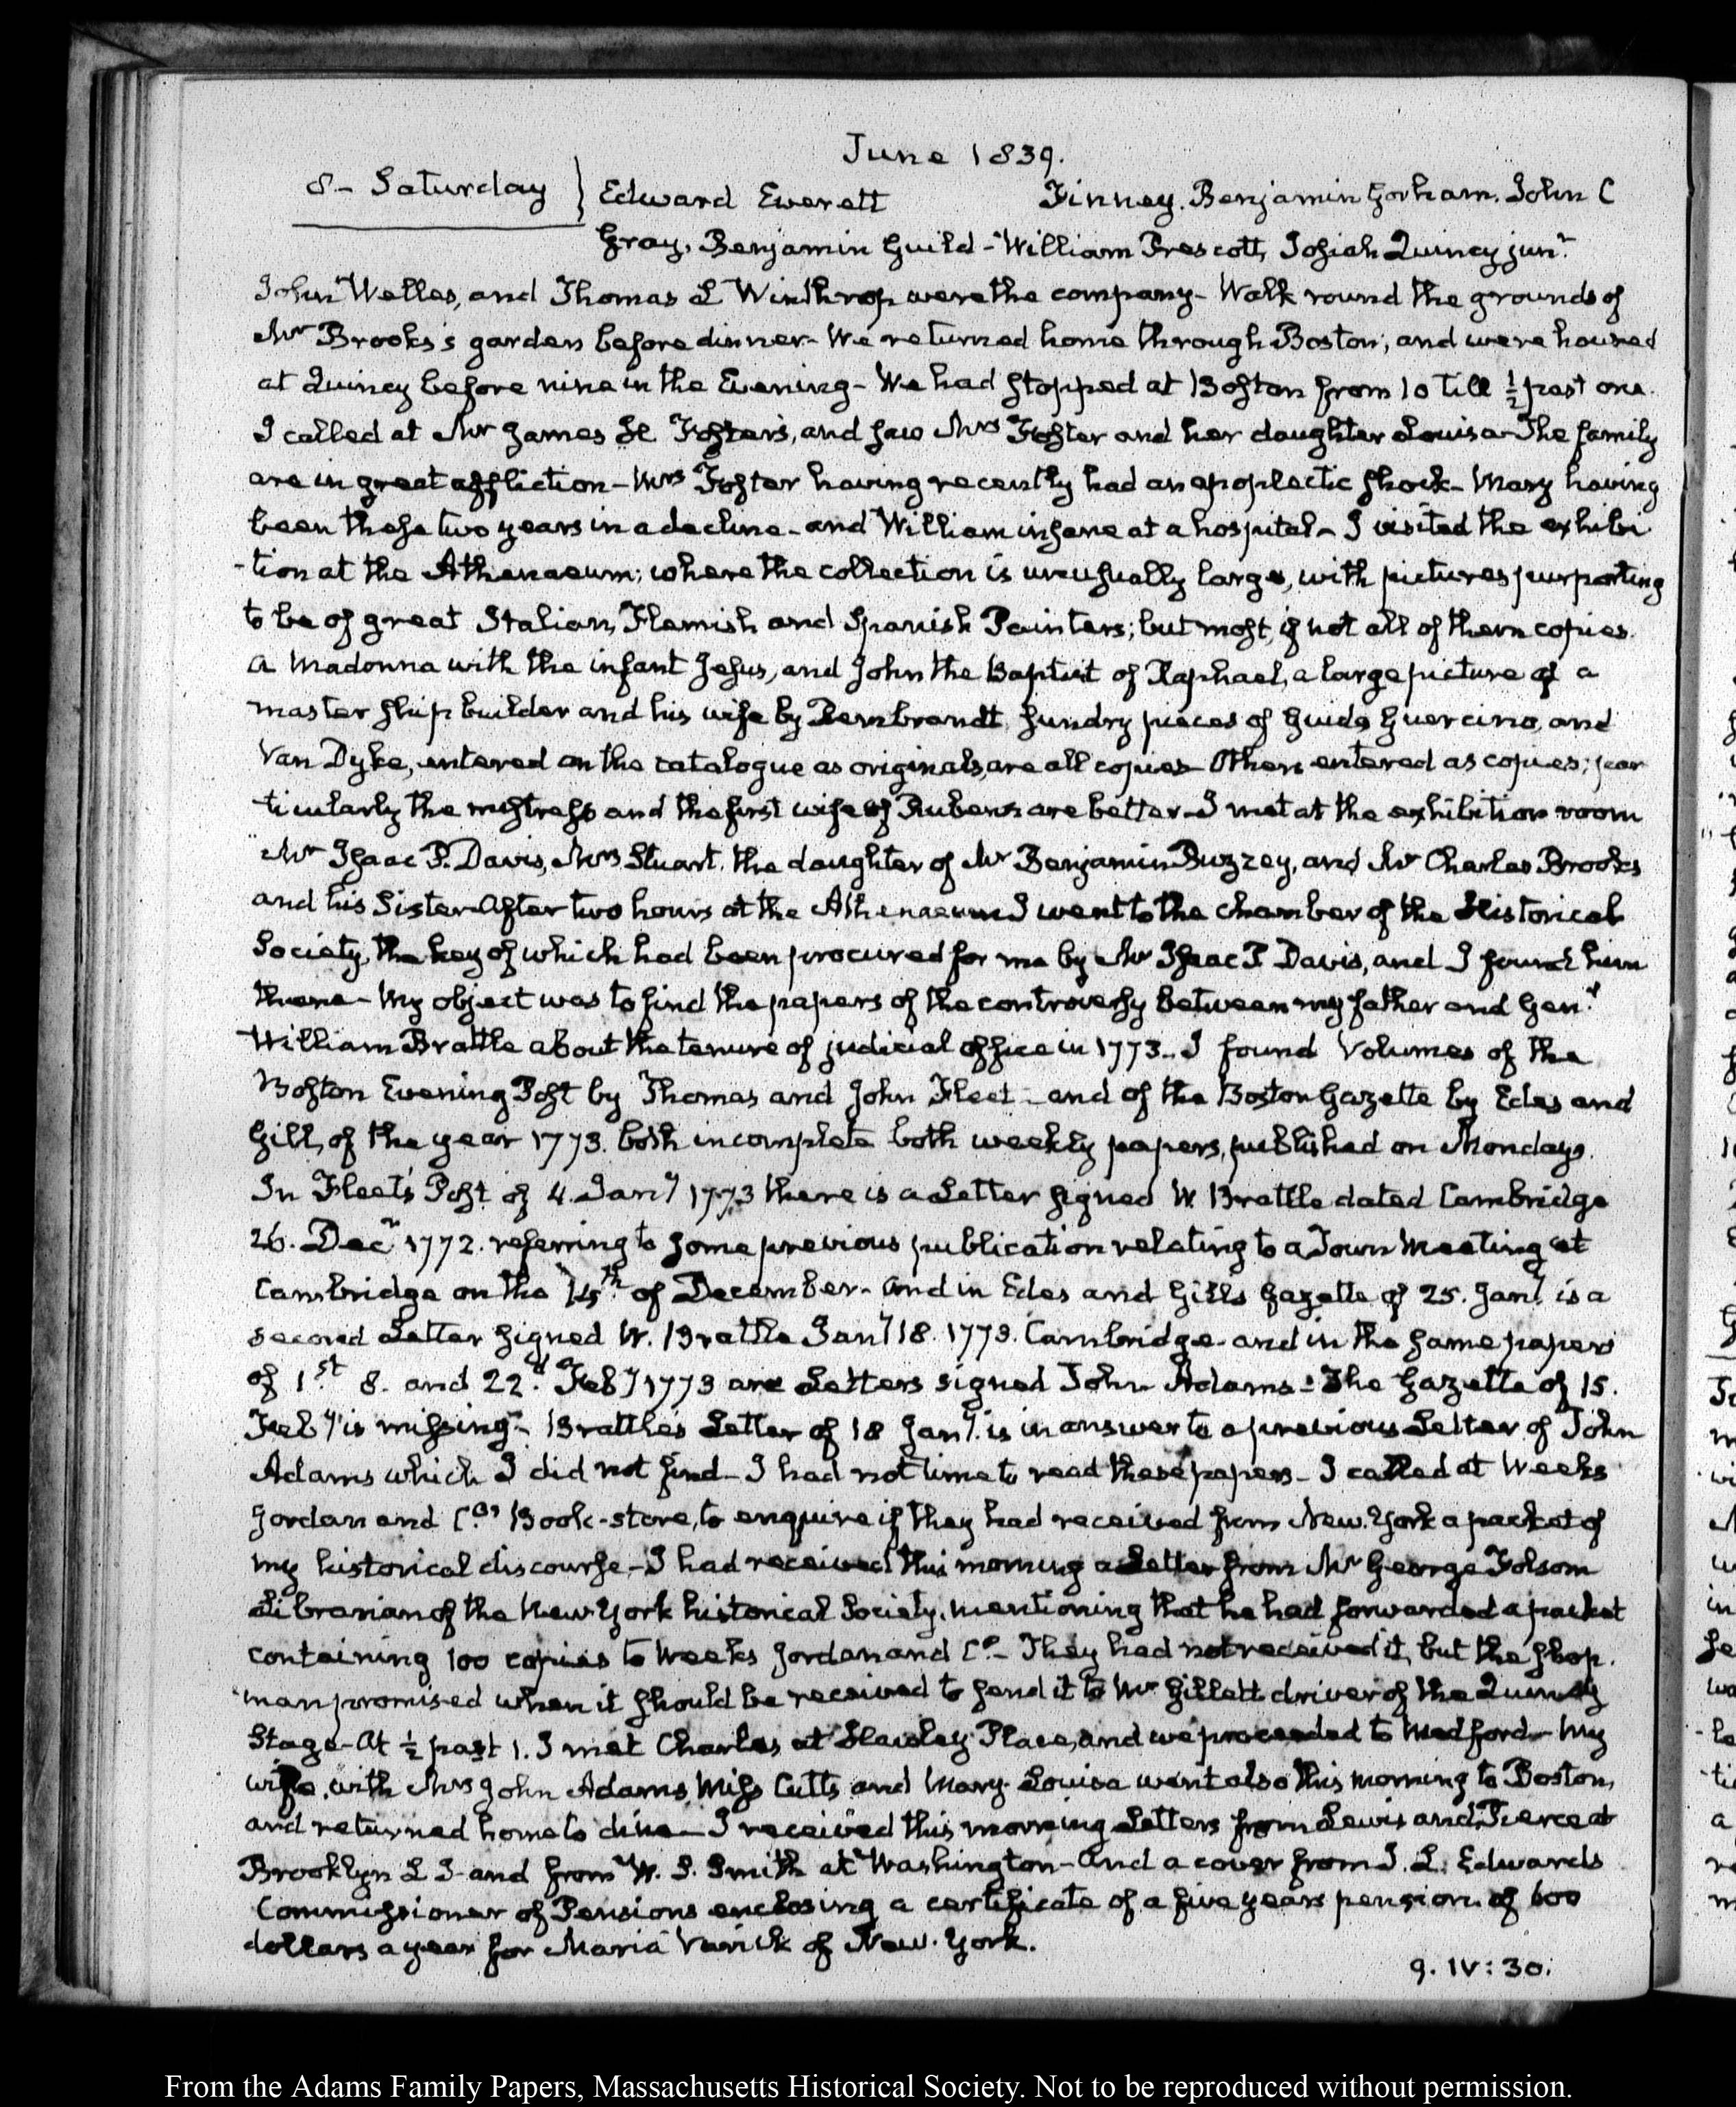 June 1839.
8- Saturday } Edward Everett Finney. Benjamin Gorham. John C
Gray, Benjamin Guild - William Prescott, Josiah Quincy junr.
John Welles, and Thomas L Winthrop were the company- Walk round the grounds of
Mr Brooks's garden before dinner- We returned home through Boston; and were housed
at Quincy before nine in the Evening- We had stopped at Boston from 10 till ½ past one.
I called at Mr James H Foster's, and saw Mrs Foster and her daughter Louisa- The family
are in great affliction- Mrs Foster having recently had an apoplectic shock- Mary having
been these two years in a decline- and William insane at a hospital- I visited the exhibi
-tion at the Athenaeum; where the collection is unusually large, with pictures purporting
to be of great Italian, Flemish and Spanish Painters; but most, if not all of them copies.
A Madonna with the infant Jesus, and John the Baptist of Raphael, a large picture of a
master ship builder and his wife by Rembrandt, sundry pieces of Guido Guercino, and
Van Dyke, entered on the catalogue as originals, are all copies- Others entered as copies; par
ticularly the mistress and the first wife of Rubens are better- I met at the exhibition room
Mr Isaac P. Davis, Mrs Stuart. the daughter of Mr Benjamin Buzzey, and Mr Charles Brooks
and his Sister- After two hours at the Athenaeum I went to the chamber of the Historical
Society, the key of which had been procured for me by Mr Isaac P Davis, and I found him
there- My object was to find the papers of the controversy between my father and Genl
William Brattle about the tenure of judicial office in 1773.. I found Volumes of the
Boston Evening Post by Thomas and John Fleet- and of the Boston Gazette by Edes and
Gill, of the year 1773. both incomplete both weekly papers, published on Mondays.
In Fleet's Post of 4. Jany 1773 there is a Letter signed W. Brattle dated Cambridge
26. Decr 1772. referring to some previous publication relating to a Town Meeting at
Cambridge on the 14th of December- and in Edes and Gill's Gazette of 25. Jany. is a
second Letter signed W. Brattle Jany 18. 1773. Cambridge- and in the same papers
of 1st. 8. and 22d. Feby 1773 are Letters signed John Adams- The Gazette of 15.
Feby is missing- Brattle's Letter of 18 Jany. is in answer to a previous Letter of John
Adams which I did not find- I had not time to read these papers- I called at Weeks
Jordan and Co's Book-store, to enquire if they had received from New. York a packet of
my historical discourse,- I had received this morning a Letter from Mr George Folsom
Librarian of the New York historical Society, mentioning that he had forwarded a packet
containing 100 copies to Weeks Jordan and Co- They had not received it, but the shop.
man promised when it should be received to send it to Mr Gillett driver of the Quincy
Stage- At ½ past 1. I met Charles at Hawley Place, and we proceeded to Medford- My
wife, with Mrs John Adams, Miss Cutts and Mary- Louisa went also this morning to Boston,
and returned home to dine- I received this morning Letters from Lewis and Pierce at
Brooklyn L I- and from W. S. Smith at Washington- And a cover from J. L. Edwards
Commissioner of Pensions enclosing a certificate of a five years pension of 600
dollars a year for Maria Varick of New. York.
9. IV:30.
From the Adams Family Papers, Massachusetts Historical Society. Not to be reproduced without permission.